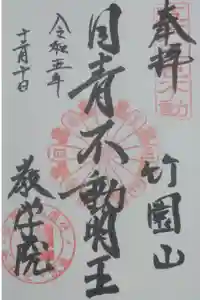 奉拝
竹園山
目青不動明王
教学院
令和五年
十一月十日